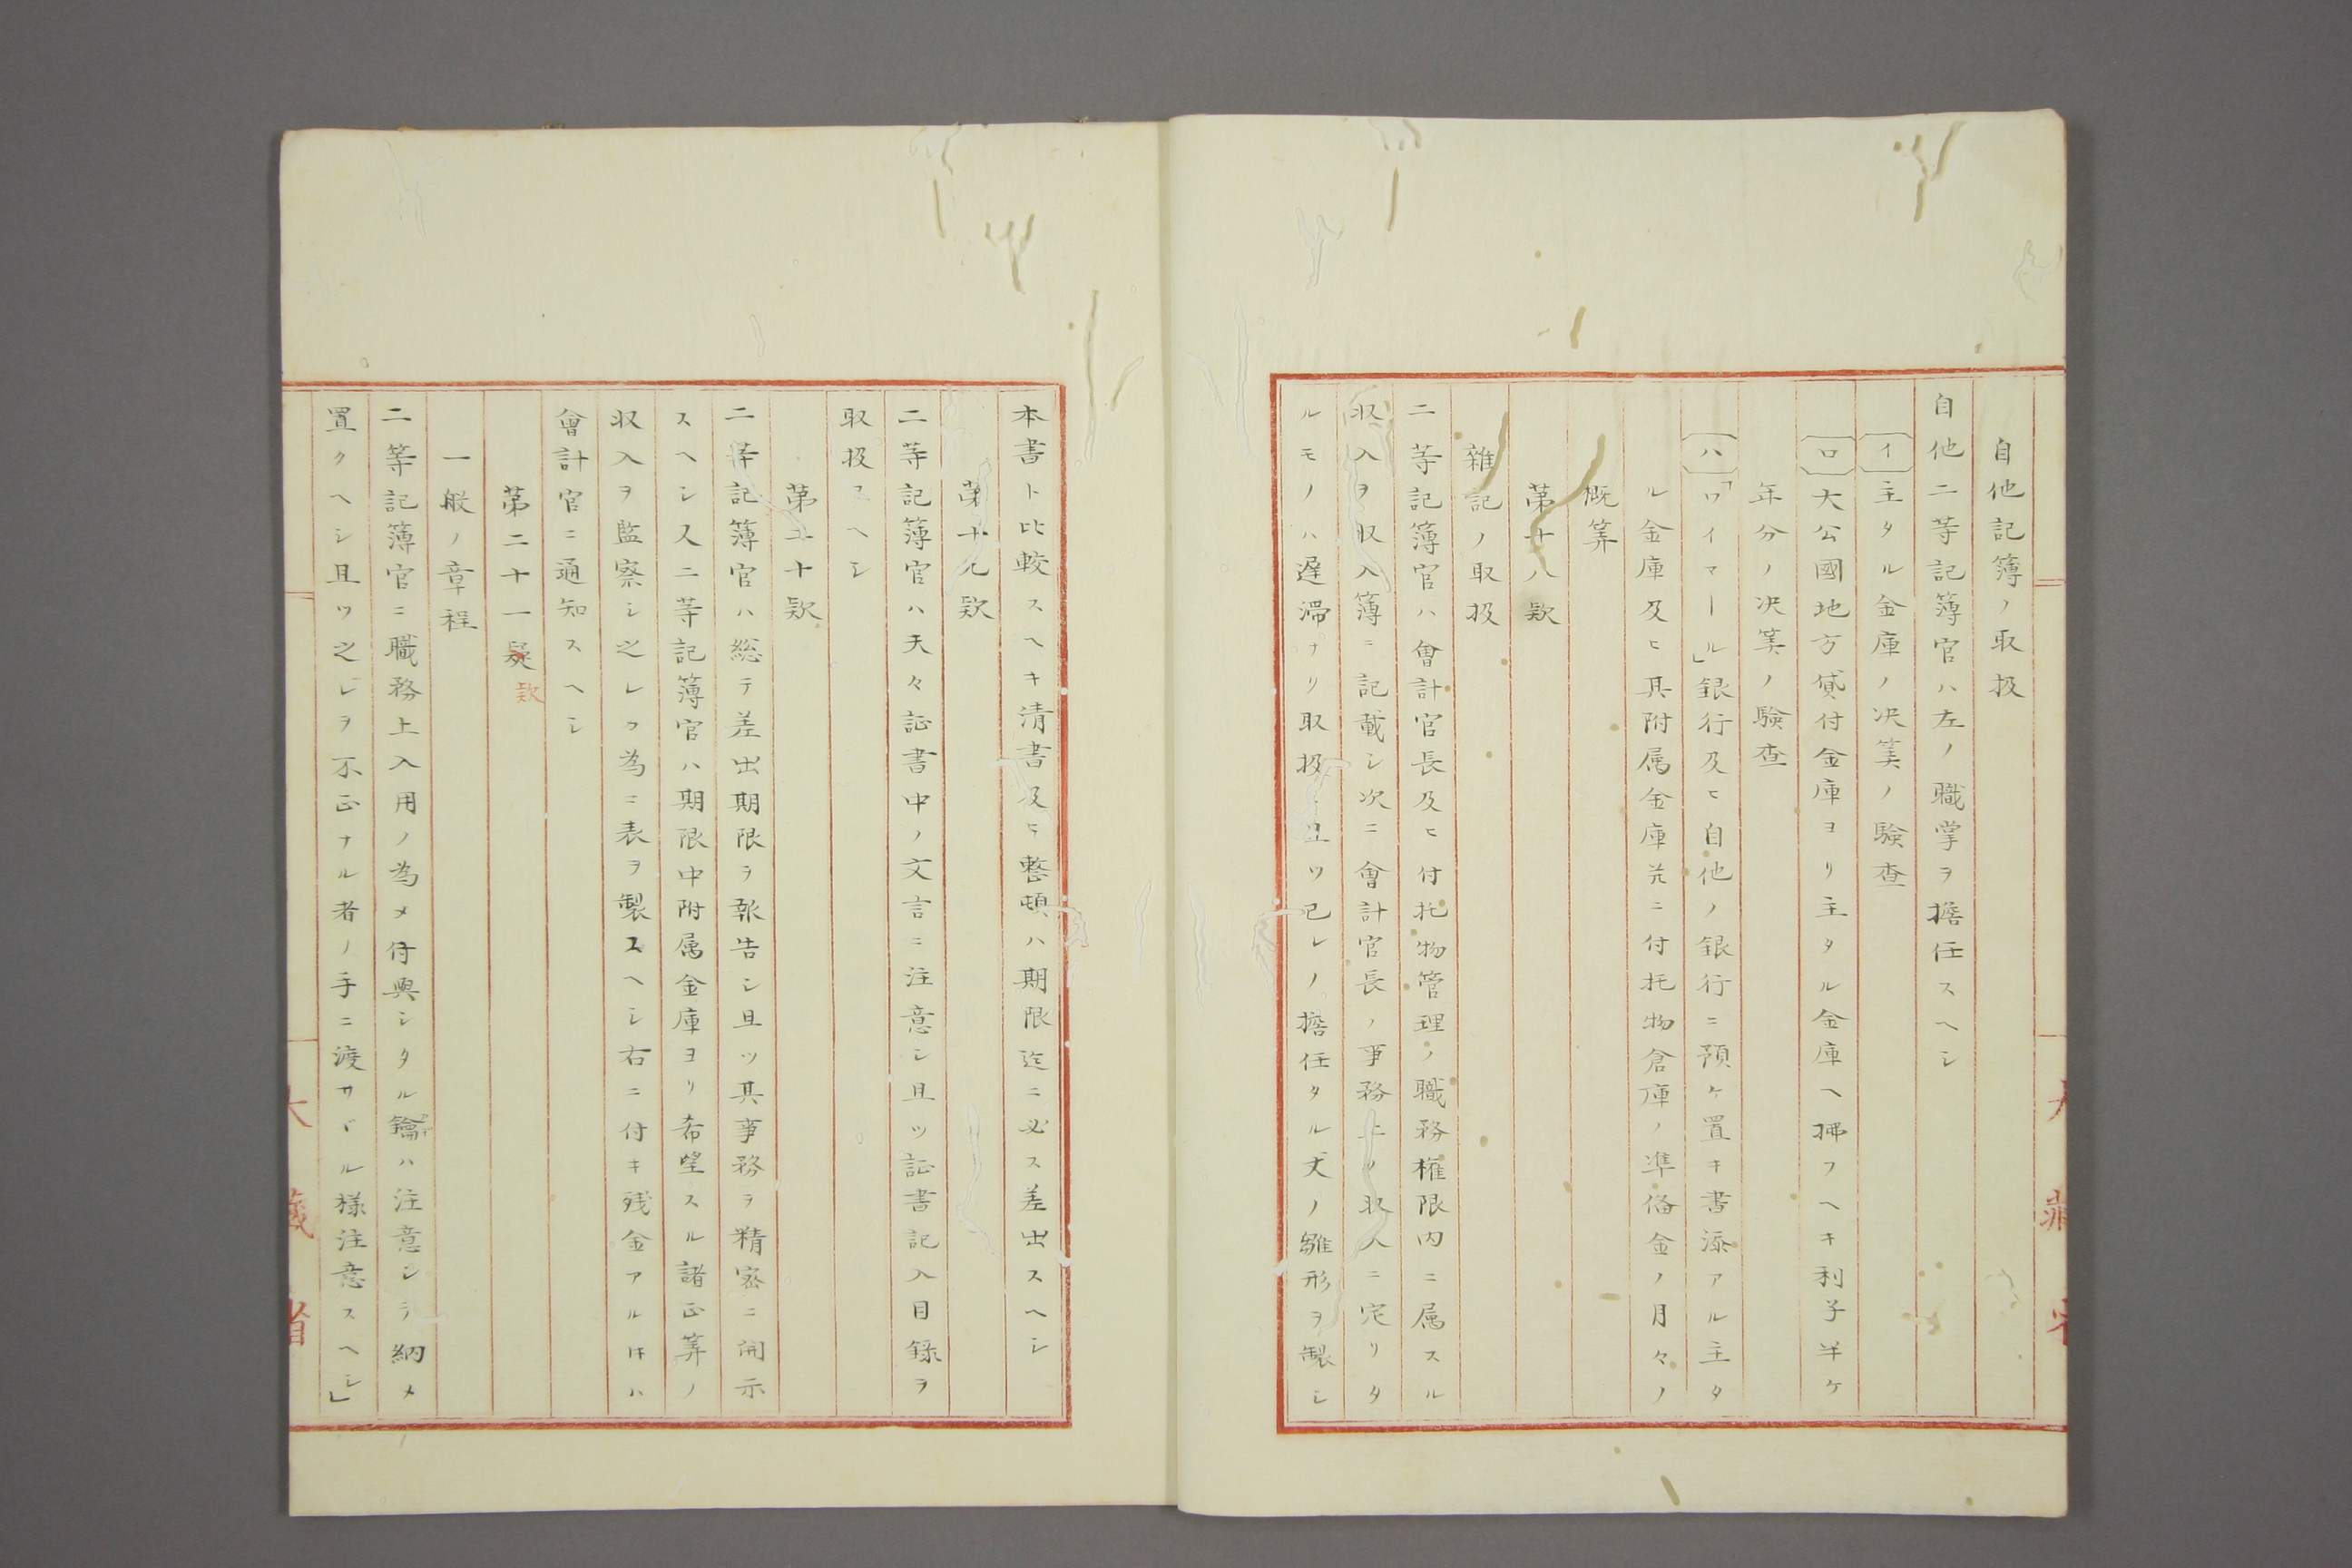 自他記簿ノ取扱
自他二等記簿官ハ左ノ職掌ヲ擔任スヘシ
(イ)主タル金庫ノ决筭ノ驗查
(ロ)大公國地方貸付金庫ヨリ主タル金庫ヘ拂フヘキ利子半ケ
年分ノ决筭ノ驗查
(ハ)「ワイマール」銀行及ヒ自他ノ銀行ニ預ケ置キ書添アル主タ
ル金庫及ヒ其附属金庫並ニ付托物倉庫ノ凖偹金ノ月々ノ
概筭
第十八欵
雜記ノ取扱
二等記簿官ハ會計官長及ヒ付托物管理ノ職務権限内ニ属スル
収入ヲ収入簿ニ記載シ次ニ會計官長ノ事務上ノ収入ニ定リタ
ルモノハ遅滞ナリ取扱 且ツ已レノ擔任タル丈ノ雛形ヲ製シ
本書ト比較スヘキ清書及ヒ整頓ハ期限迄ニ必ス差出スヘシ
第十九欵
二等記簿官ハ夭々証書中ノ文言ニ注意シ且ツ証書記入目録ヲ
取扱フヘシ
第二十欵
二等記簿官ハ総テ差出期限ヲ報告シ且ツ其事務ヲ精密ニ開示
スヘシ又二等記簿官ハ期限中附属金庫ヨリ希望スル諸正筭ノ
収入ヲ監察シ之レカ為ニ表ヲ製スヘシ右ニ付キ残金アル𪜈ハ
會計官ニ通知スヘシ
第二十一欵
一般ノ章程
二等記簿官ニ職務上入用ノ為メ付與シタル鑰ハ注意シテ納メ
置クヘシ且ツ之レヲ不正ナル者ノ手ニ渡サヾル様注意スヘシ」
大藏省